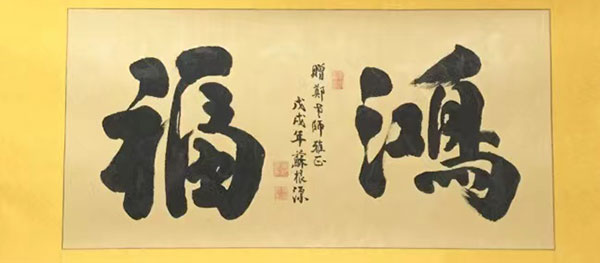 鴻
贈鄭老師雅正
戊戌年蘇根源
福